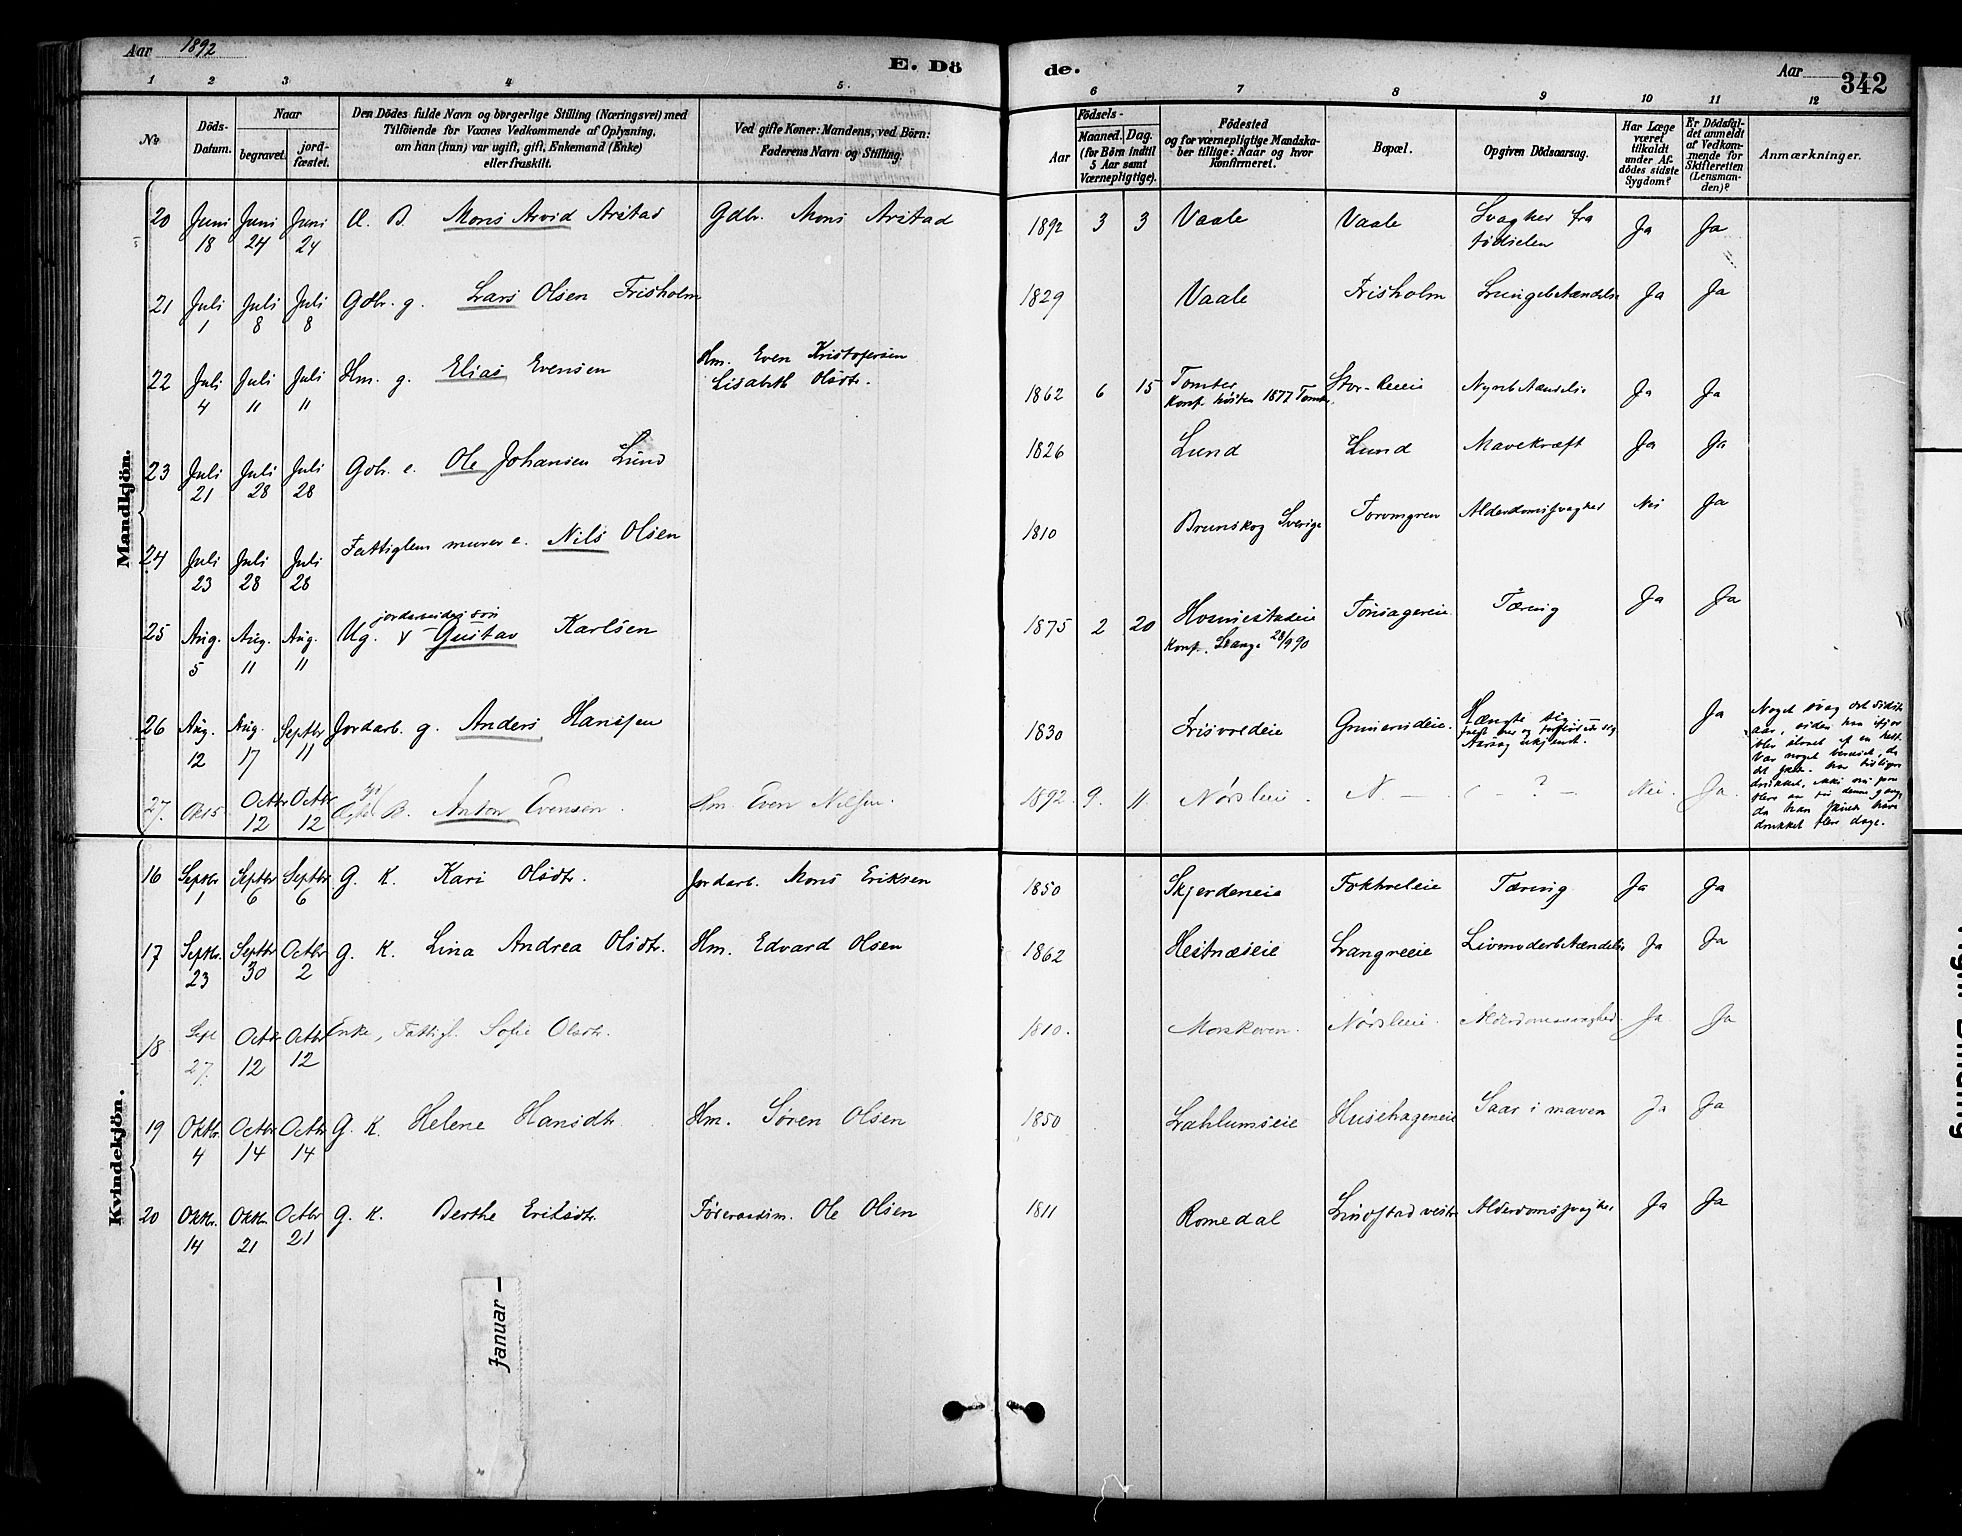 Aar 1892
E. Dö
de.
Aar
342
1 2 3 4 5. 6 7 8 9 10 11 12
No
Döds-Datum.
Naar
begravet.
jord-fæstet.
Den Dödes fulde Navn og borgerlige Stilling (Næringsvei) med
Tilföiende for Voxnes Vedkommende af Oplysning,
om han (hun) var ugift, gift, Enkemand (Enke)
eller fraskilt.
Ved gifte Koner: Mandens, ved Börn:
Faderens Navn og Stilling.
Födsels-
Aar
Maaned. Dag.
(for Börn indtil
5 Aar samt
Værnepligtige).
Födested
og for værnepligtige Mandska-
ber tillige: Naar og hvor
konfirmeret.
Bopæl.
Opgiven Dödsaarsag.
Har Læge
været
tilkaldt
under Af-
dödes sidste
Sygdom?
Er Dödsfal-
det anmeldt
af Vedkom-
mende for
Skifteretten
(Lensman-
den)?
Anmærkninger.
Mandkjön.
20 Juni 18 Juni 24 Juni 24 B. Mons Arvid Arstad Gdbr. Mons Arstad 1892 3 3 Vaale Vaale Svaghed fra fødselen Ja Ja
21 Juli 1 Juli 8 Juli 8 Gdbr. g. Lars Olsen Frisholm 1829 Vaale Frisholm Lungebetændelse Ja Ja
22 Juli 4 Juli 11 Juli 11 Hm. g. Elias Evensen Hm. Even Kristofersen Lisabeth Olsdtr. 1862 6 15 Tomter Konf. høsten 1877 Tomter Nyrebetændelse Ja Ja
23 Juli 21 Juli 28 Juli 28 Gdbr. e. Ole Johansen Lund 1826 Lund Lund Mavekræft Ja Ja
24 Juli 23 Juli 28 Juli 28 Fattiglem murer e. Nils Olsen 1810 Brunskog Sverige Alderdomssvaghed Nei Ja
25 Aug. 5 Aug. 11 Aug. 11 Ug. jordarbeider søn Gustav Karlsen 1875 2 20 Konf. Stange 28/9 90 Tæring Ja Ja
26 Aug. 12 Aug. 17 Septbr 11 Jordarb. g. Anders Hansen 1830 Frisvoldeie Hængte sig Aarsag ukjendt. Ja
Noget svag det sidste
aar, siden han ifjor
blev slaaet af en hest.
drukket flere dage.
27. Okt 5 Octbr 12 Octbr 12 B. Anton Evensen. Hm. Even Nilsen. 1892. 9. 11 Nørsleie. N. — — ? — Nei. Ja.
Kvindekjön.
16 Septbr 1 Septbr 6 Septbr 6 G. K. Kari Olsdtr. Jordarb. Mons Eriksen 1850 Skjerdeneie Tæring Ja Ja
17 Septbr. 23 Septbr 30 Octbr 2 G. K. Lina Andrea Olsdtr. Hm. Edvard Olsen 1862 Hestnæseie Livmoderbetændelse Ja Ja
18 Sept 27. Octbr 12 Octbr 12 Enke, Fattigl. Sofie Olsdtr. 1810. Morskoven. Nørsleie. Alderdomssvaghed. Ja. Ja
19 Oktbr. 4 Octbr 14 Octbr 14 G. K. Helene Hansdtr. Hm. Søren Olsen 1850 Husehageneie Saar i maven Ja Ja
20 Oktbr. 14 Oktbr. 21 Octbr 21 G. K. Berthe Eriksdtr. Føderaadsm. Ole Olsen 1811 Romedal Lindstad vestre Alderdomssvaghed Ja Ja
Januar –